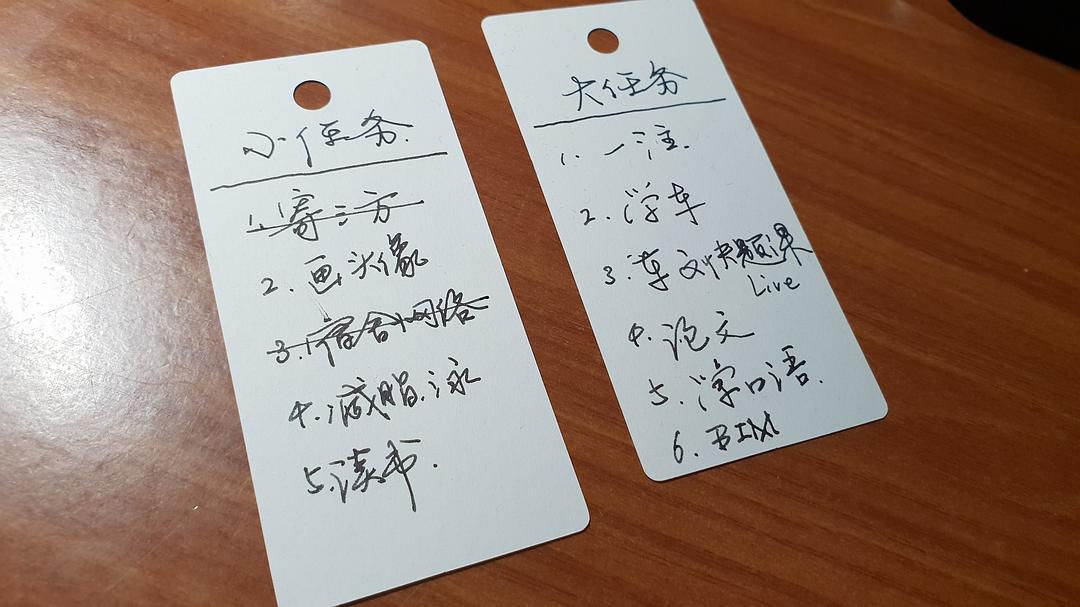 小任务
1. 寄三方
2. 画头像
3. 宿舍网络
4. 减脂.泳
5. 读书.
大任务
1. 一注.
2. 学车
3. 快题课
Live
4. 论文
5. 学口语.
6. BIM